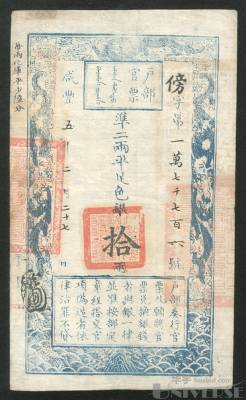 戶部
官票
傍字第一萬七千七百六號
準二兩平足色銀拾兩
咸豐五年二月二十七日
每兩比庫平少陸分
戶部奏行官
票凡願將官
票兌換銀錢
者與銀一律
並准按部定
章程搭交官
項偽造者依
律治罪不貸
UNIVERSE